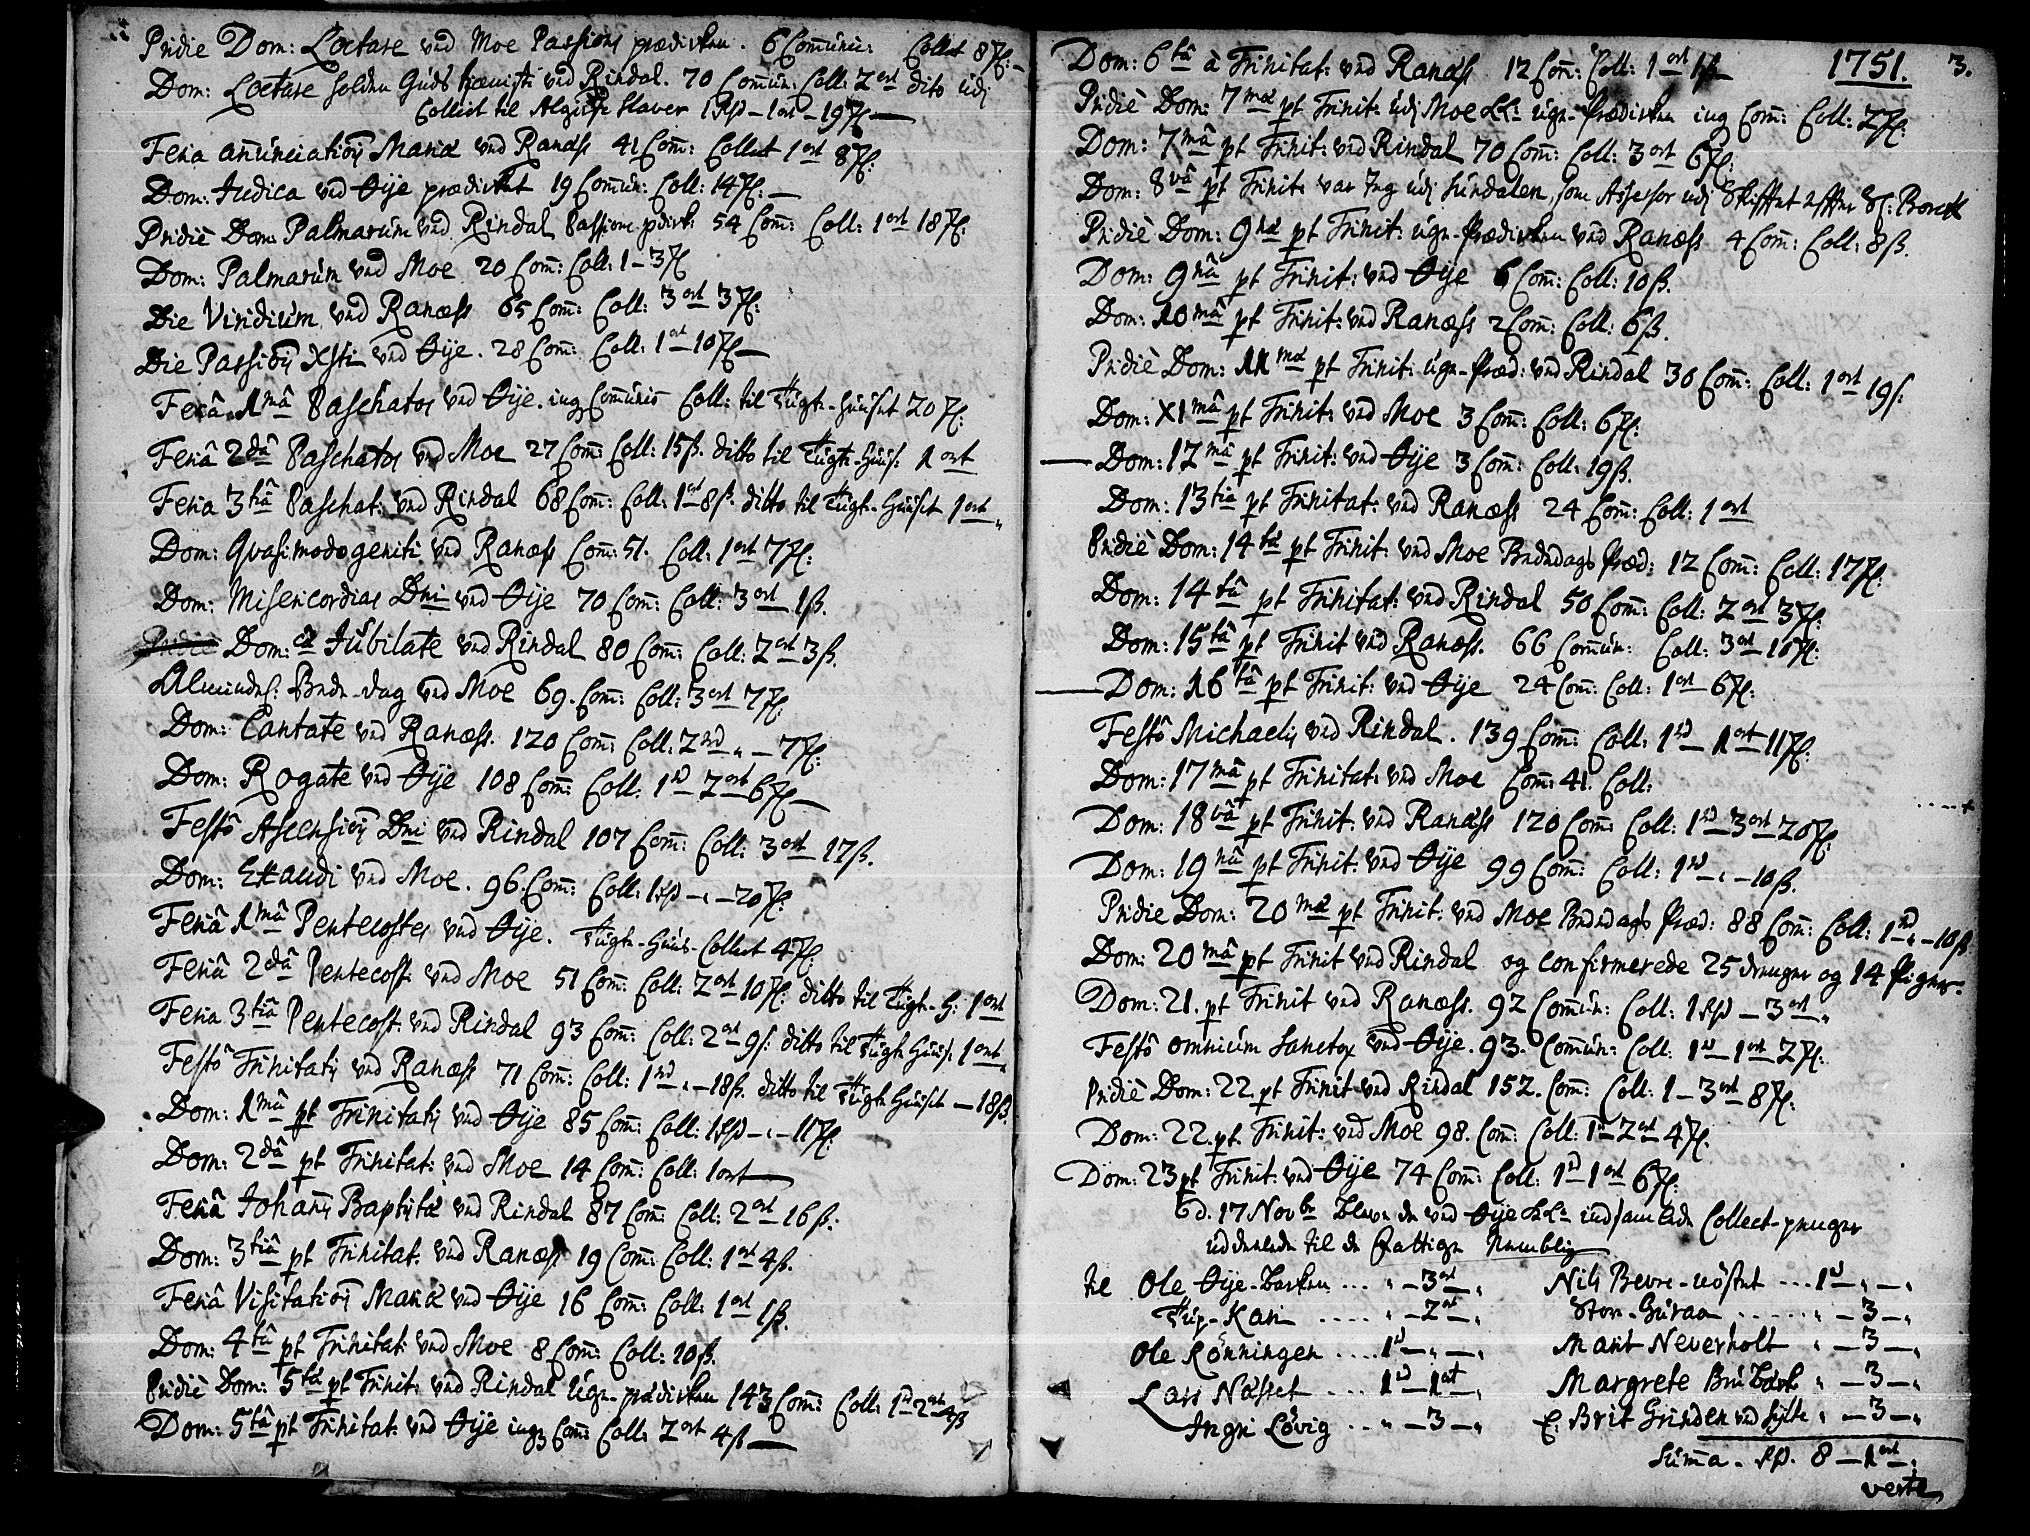 Pridie Dom: Lætare ved Moe Passions prædiken. 6 Communic: Collect 8 ß:
Dom: Lætare holden Guds tjeniste ved Rindal. 70 Comun: Coll: 2 ort dito udj
Collect til Algierske slaver 1 Rd – 1 ort – 19 ß
Feria anunciationis Mariæ ved Ranæss 41 Com̄: Collect 1 ort 8 ß:
Dom: Judica ved Øije prædiket 19 Comun: Coll: 14 ß:
Pridiè Dom Palmarum ved Rindal Passions pdirk: 54 Com̄: Coll: 1 ort 18 ß:
Dom: Palmarum ved Moe 20 Com̄: Coll: 1 – 3 ß
Die Viridium ved Ranæss 65 Com̄: Coll: 3 ort 3 ß:
Die Passionis Xsti ved Øije. 28 Com̄: Coll: 1 ort 10 ß
Feriâ 1mâ Paschatos ved Øije. ing Comunic Coll: til Tugt-huuset 20 ß:
Feriâ 2dâ Paschatos ved Moe 27 Com̄: Coll: 15 ß. ditto til Tugt-Huus: 1 ort
Feria 3tiâ Paschat: ved Rindal 68 Com̄: Coll: 1 ort 8 ß. ditto til Tugt-Huuset 1 ort
Dom: Qvasimodogeniti ved Ranæss Com̄: 51. Coll: 1 ort 7 ß:
Dom: Misericordias Dni ved Øije 70 Com̄: Coll: 3 ort 1 ß.
Dom: Jubilate ved Rindal 80 Com̄: Coll: 2 ort 3 ß.
Almindel: Bede-dag ved Moe 69. Com̄: Coll: 3 ort 7 ß:
Dom: Cantate ved Ranæss. 120 Com̄: Coll: 2 rd „ – 7 ß:
Dom: Rogate ved Øije 108 Com̄: Coll: 1 rd 2 ort 6 ß
Festô Ascensionis Dni ved Rindal 107 Com̄: Coll: 3 ort 17 ß.
Dom: Exaudi ved Moe. 96. Com̄: Coll: 1 Rd – „ – 20 ß:
Feriâ 1mâ Pentecostes ved Øije. Tugt-Huus-Collect 4 ß:
Feriâ 2dâ Pentecost: ved Moe 51 Com̄: Coll: 2 ort 10 ß: ditto til Tugt-H: 1 ort
Feria 3tiâ Pentecost: ved Rindal 93 Com̄: Coll: 2 ort 9 ß: ditto til Tugt Huus: 1 ort
Festô Trinitatis ved Ranæss 71 Com̄: Coll: 1 rd „ – 18 ß. ditto til Tugt Huuset – 18 ß.
Dom: 1mâ pt Trinitatis ved Øije 85 Com̄: Coll: 1 Rd – „ – 11 ß:
Dom: 2dâ pt Trinitat: ved Moe 14 Com̄: Coll: 1 ort
Feriâ Johannis Baptistæ ved Rindal 87 Com̄: Coll: 2 ort 16 ß:
Dom: 3tiâ pt Trinitat: ved Ranæss 19 Com̄: Coll: 1 ort 4 ß.
Feriâ Visitationis Mariæ ved Øije 16 Com̄: Coll: 1 ort 1 ß.
Dom: 4tâ pt Trinitat: ved Moe 8 Com̄: Coll: 10 ß.
Pridiè Dom: 5tæ pt Trinit: ved Rindal Uge-prædiken 143 Com̄: Coll: 1 rd 2 ort 4 ß
Dom: 5tâ pt Trinitat: ved Øije ingen Com̄: Coll: 2 ort 4 ß
Dom: 6tâ à Trinitat: ved Ranæss 12 Com̄: Coll: 1 ort 1 ß 1751. 3.
Pridiè Dom: 7mæ pt Trinit: udj Moe K: uge-Prædiken ing Com̄: Coll: 2 ß:
Dom: 7mâ pt Trinit: ved Rindal 70 Com̄: Coll: 3 ort 6 ß:
Dom: 8vâ pt Trinit: var Jeg udj Sundalen, som Assessor udj Skiftet efter Sl: Brock
Pridiè Dom: 9næ pt Trinit: uge-Prædiken ved Ranæss 4 Com̄: Coll: 8 ß.
Dom: 9nâ pt Trinit: ved Øije 6 Com̄: Coll: 10 ß.
Dom: 10mâ pt Trinit: ved Ranæss 2 Com̄: Coll: 6 ß.
Pridiè Dom: 11mæ pt Trinit: uge-Præd: ved Rindal 30 Com̄: Coll: 1 ort 19 ß:
Dom: XImâ pt Trinit: ved Moe 3 Com̄: Coll: 6 ß:
Dom: 12mâ pt Trinit: ved Øije 3 Com̄: Coll: 19 ß.
Dom: 13tiâ pt Trinitat: ved Ranæss 24 Com̄: Coll: 1 ort
Pridiè Dom: 14tæ pt Trinit: ved Moe Bededags Præd: 12 Com̄: Coll: 17 ß:
Dom: 14tâ pt Trinitat: ved Rindal 50 Com̄: Coll: 2 ort 3 ß:
Dom: 15tâ pt Trinit ved Ranæss. 66 Comun: Coll: 3 ort 10 ß:
Dom: 16tâ pt Trinit: ved Øije 24 Com̄: Coll: 1 ort 6 ß:
Festô Michaelis ved Rindal. 139 Com̄: Coll: 1 rd – 1 ort 11 ß:
Dom: 17mâ pt Trinitat: ved Moe Com̄: 41. Coll:
Dom: 18vâ pt Trinit: ved Ranæss 120 Com̄: Coll: 1 rd 3 ort 20 ß:
Dom: 19nâ pt Trinit: ved Øije 99 Com̄: Coll: 1 rd „ – 10 ß.
Pridie Dom: 20mæ pt Trinit: ved Moe Bededags Præd: 88 Com̄: Coll: 1 rd „ – 10 ß
Dom: 20mâ pt Trinit ved Rindal og confirmerede 25 drenger og 14 Piger.
Dom: 21. pt Trinit ved Ranæss. 92 Comun: Coll: 1 Rd – 3 ort „
Festô omnium Sanctor ved Øije. 93. Comun: Coll: 1 rd – 1 ort 2 ß:
Pridiè Dom: 22. pt Trinit ved Rindal 152. Com̄: Coll: 1 – 3 ort 8 ß:
Dom: 22. pt. Trinit: ved Moe 98. Com̄: Coll: 1 rd 2 ort 4 ß.
Dom: 23 pt Trinit: ved Øije 74 Com̄: Coll: 1 rd 1 ort 6 ß:
d. 17 Novbr blev de ved Øije indsamlede Collect-penger
uddeelede til de Fattige Nemblig
til Ole Øije-bakken .... „ – 3 ort „ Nils Bevre-nøstet .... 1 rd – „ – „
Kari ..... „ – 2 ort „ Store-Guroe ...... „ – 3 – „
Ole Rønningen .... 1 rd – „ – „ Marit Neverholt „ – 3 – „
Lars Næsset .... 1 rd – 1 ort „ Margrete Bru-bak „ – 3 – „
Ingri Løvig .. „ – 3 – „ E. Brit Grinden ved Sylte „ – 3 – „
Sum̄a. Rd. 8 – 1 ort „
verte